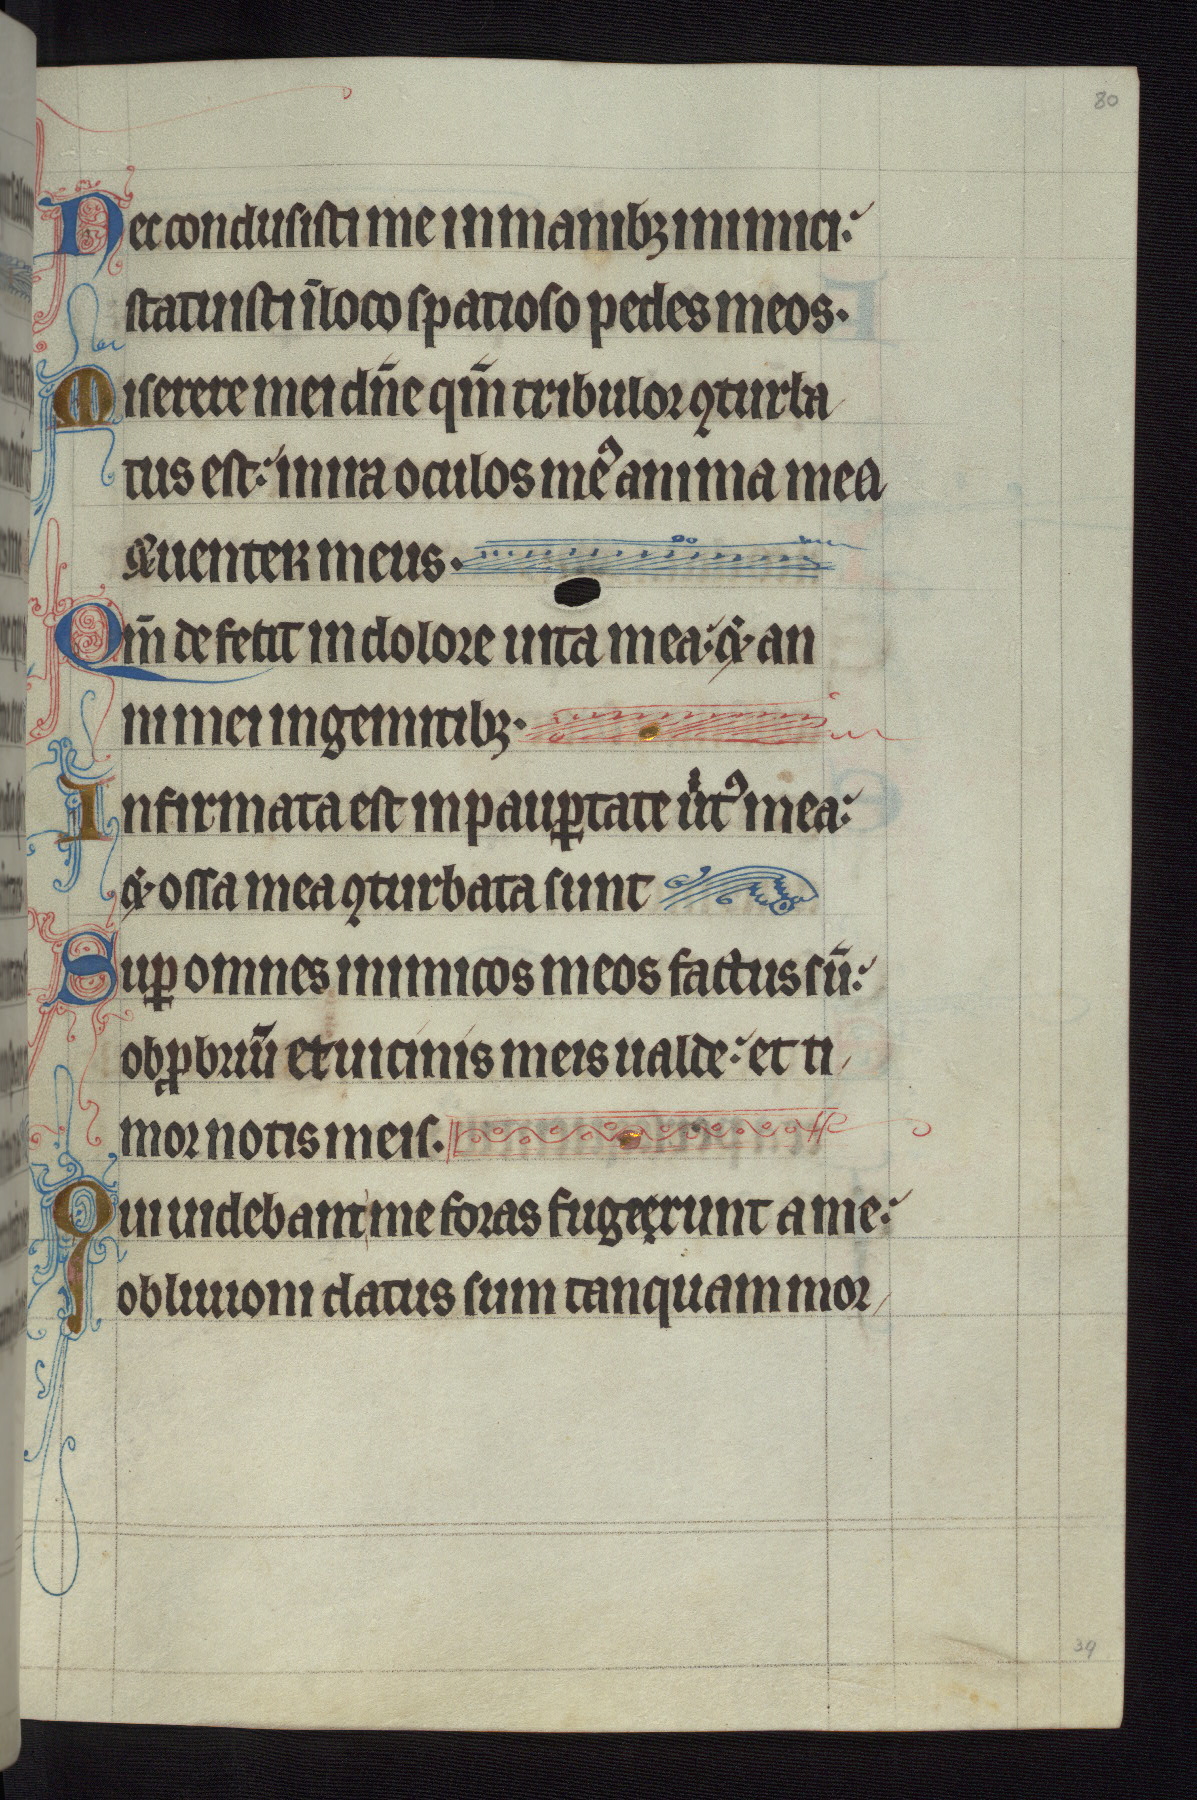 80
Nec conclusisti me in manibꝫ inimici:
statuisti ī loco spatioso pedes meos.
Miserere mei dñe qm̄ tribulor ꝯturba
tus est: in ira oculos me᷒ anima mea
⁊ uenter meus.
Qm̄ defecit in dolore uita mea: ⁊ an
ni mei in gemitibꝫ.
Infirmata est in paup̱tate u̇t᷒ mea:
⁊ ossa mea ꝯturbata sunt
Sup̱ omnes inimicos meos factus sū:
obꝓbriū et uicinis meis ualde: et ti
mor notis meis.
Qui uidebant me foras fugeẹrunt a me:
obliuioni datus sum tanquam mor
39